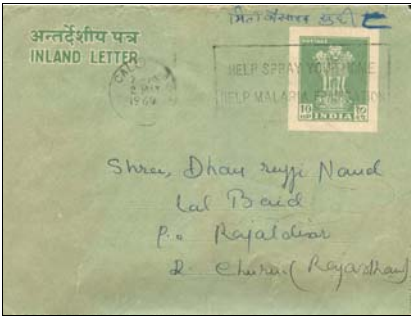 मिती वैसाख सुदी
अन्तर्देशीय पत्र
INLAND LETTER
HELP SPRAY YOUR HOME
HELP MALARIA ERADICATION
10 INDIA
Shree, Dhan Nand
Lal Baid
P.O Rajaldisar
D. Churu (Rajasthan)